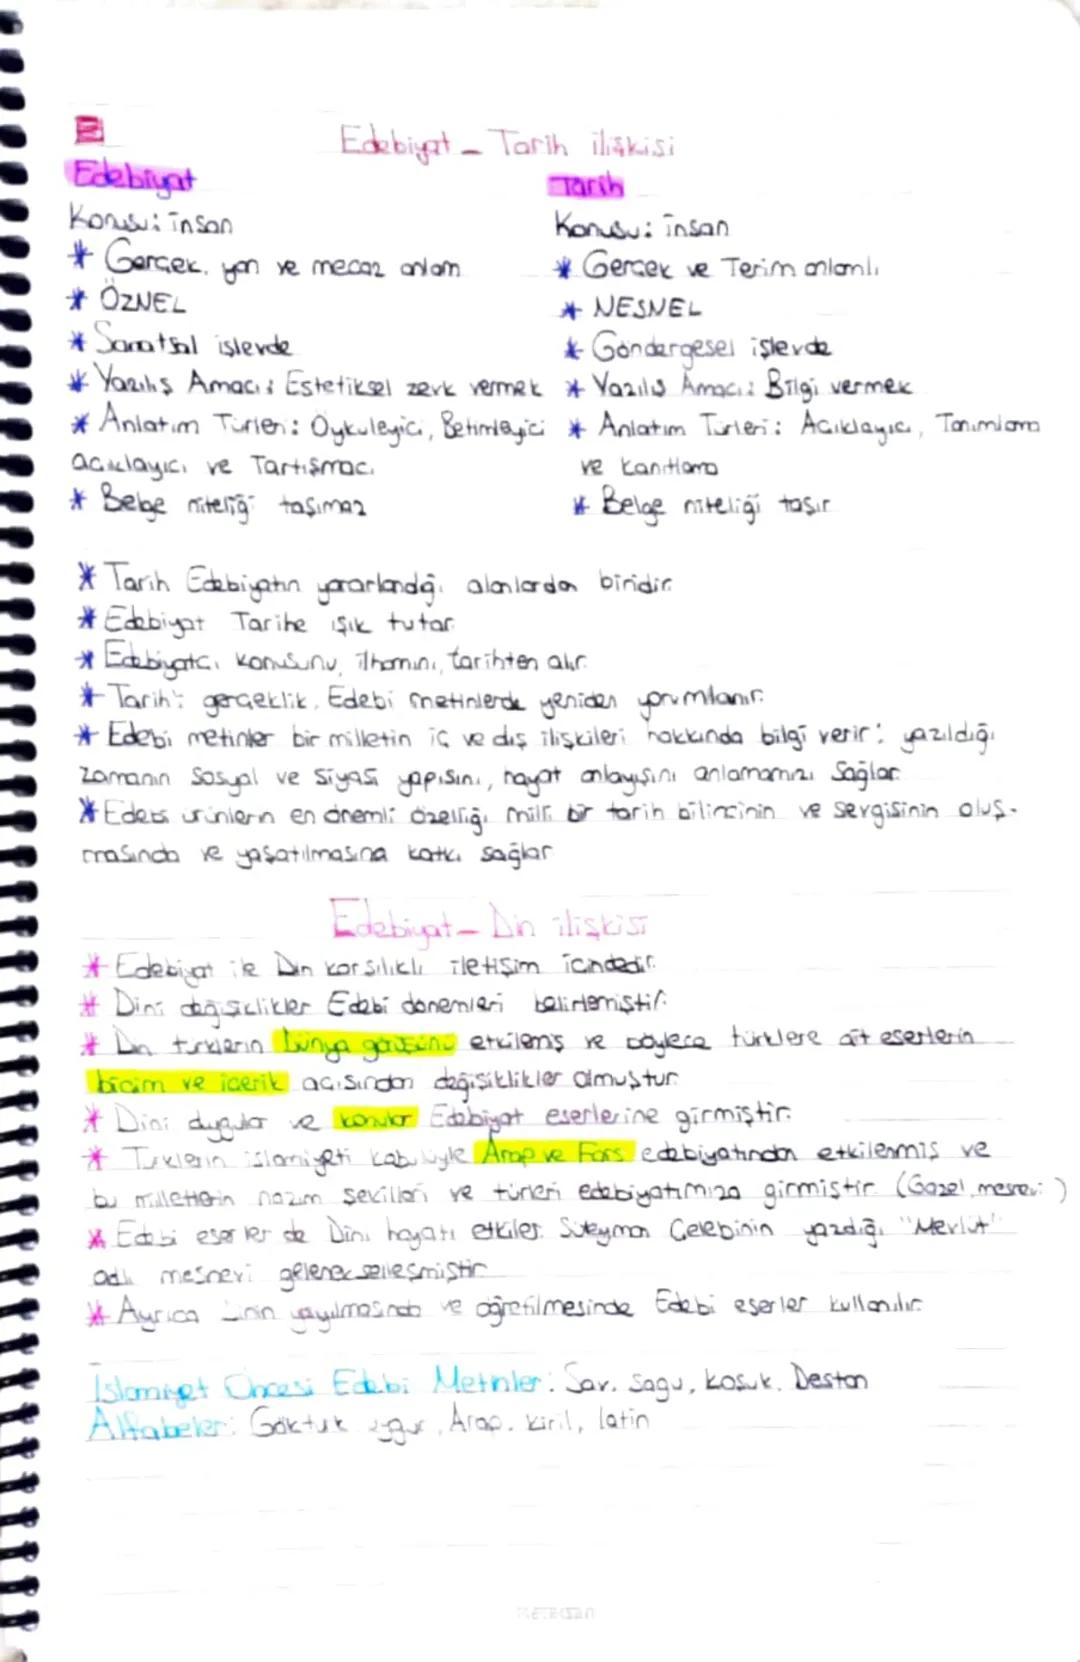 Edebiyat - Tarih ilişkisi
Edebiyat
Tarih
Konusu: insan
Konusu: insan
* Gerçek, yan ve mecaz anlam
* Gerçek ve Terim anlamlı
* ÖZNEL
* NESNEL
* Sanatsal işlevde
* Göndergesel işlevde
* Yazılış Amacı: Estetiksel zevk vermek
* Yazılış Amacı: Bilgi vermek
* Anlatım Türleri: Öyküleyici, Betimleyici
* Anlatım Türleri: Açıklayıcı, Tanımlama
açıklayıcı ve Tartışmacı
ve kanıtlama
* Belge niteliği taşımaz
* Belge niteliği taşır
* Tarih Edebiyatın yararlandığı alanlardan biridir.
* Edebiyat Tarihe ışık tutar.
* Edebiyatçı konusunu, ilhamını, tarihten alır.
* Tarihi gerçeklik, Edebi metinlerde yeniden yorumlanır.
* Edebi metinler bir milletin iç ve dış ilişkileri hakkında bilgi verir; yazıldığı
zamanın sosyal ve siyasi yapısını, hayat anlayışını anlamamızı sağlar.
* Edebi ürünlerin en önemli özelliği milli bir tarih bilincinin ve sevgisinin oluş-
masında ve yaşatılmasına katkı sağlar
Edebiyat - Din ilişkisi
* Edebiyat ile Din karşılıklı iletişim içindedir.
* Dini değişiklikler Edebi dönemleri belirlemiştir.
* Din türklerin Dünya görüşünü etkilemiş ve böylece türklere ait eserlerin
biçim ve içerik açısından değişiklikler olmuştur.
* Dini duygular ve konular Edebiyat eserlerine girmiştir.
* Türklerin islamiyeti kabulüyle Arap ve Fars edebiyatından etkilenmiş ve
bu milletlerin nazım şekilleri ve türleri edebiyatımıza girmiştir. (Gazel, mesnevi)
* Edebi eserler de Dini hayatı etkiler. Süleyman Çelebinin yazdığı "Mevlüt"
adlı mesnevi gelenekselleşmiştir
* Ayrıca Dinin yayılmasında ve öğretilmesinde Edebi eserler kullanılır.
İslamiyet Öncesi Edebi Metinler: Sav, Sagu, koşuk, Destan
Alfabeler: Göktük uygur, Arap, kiril, latin